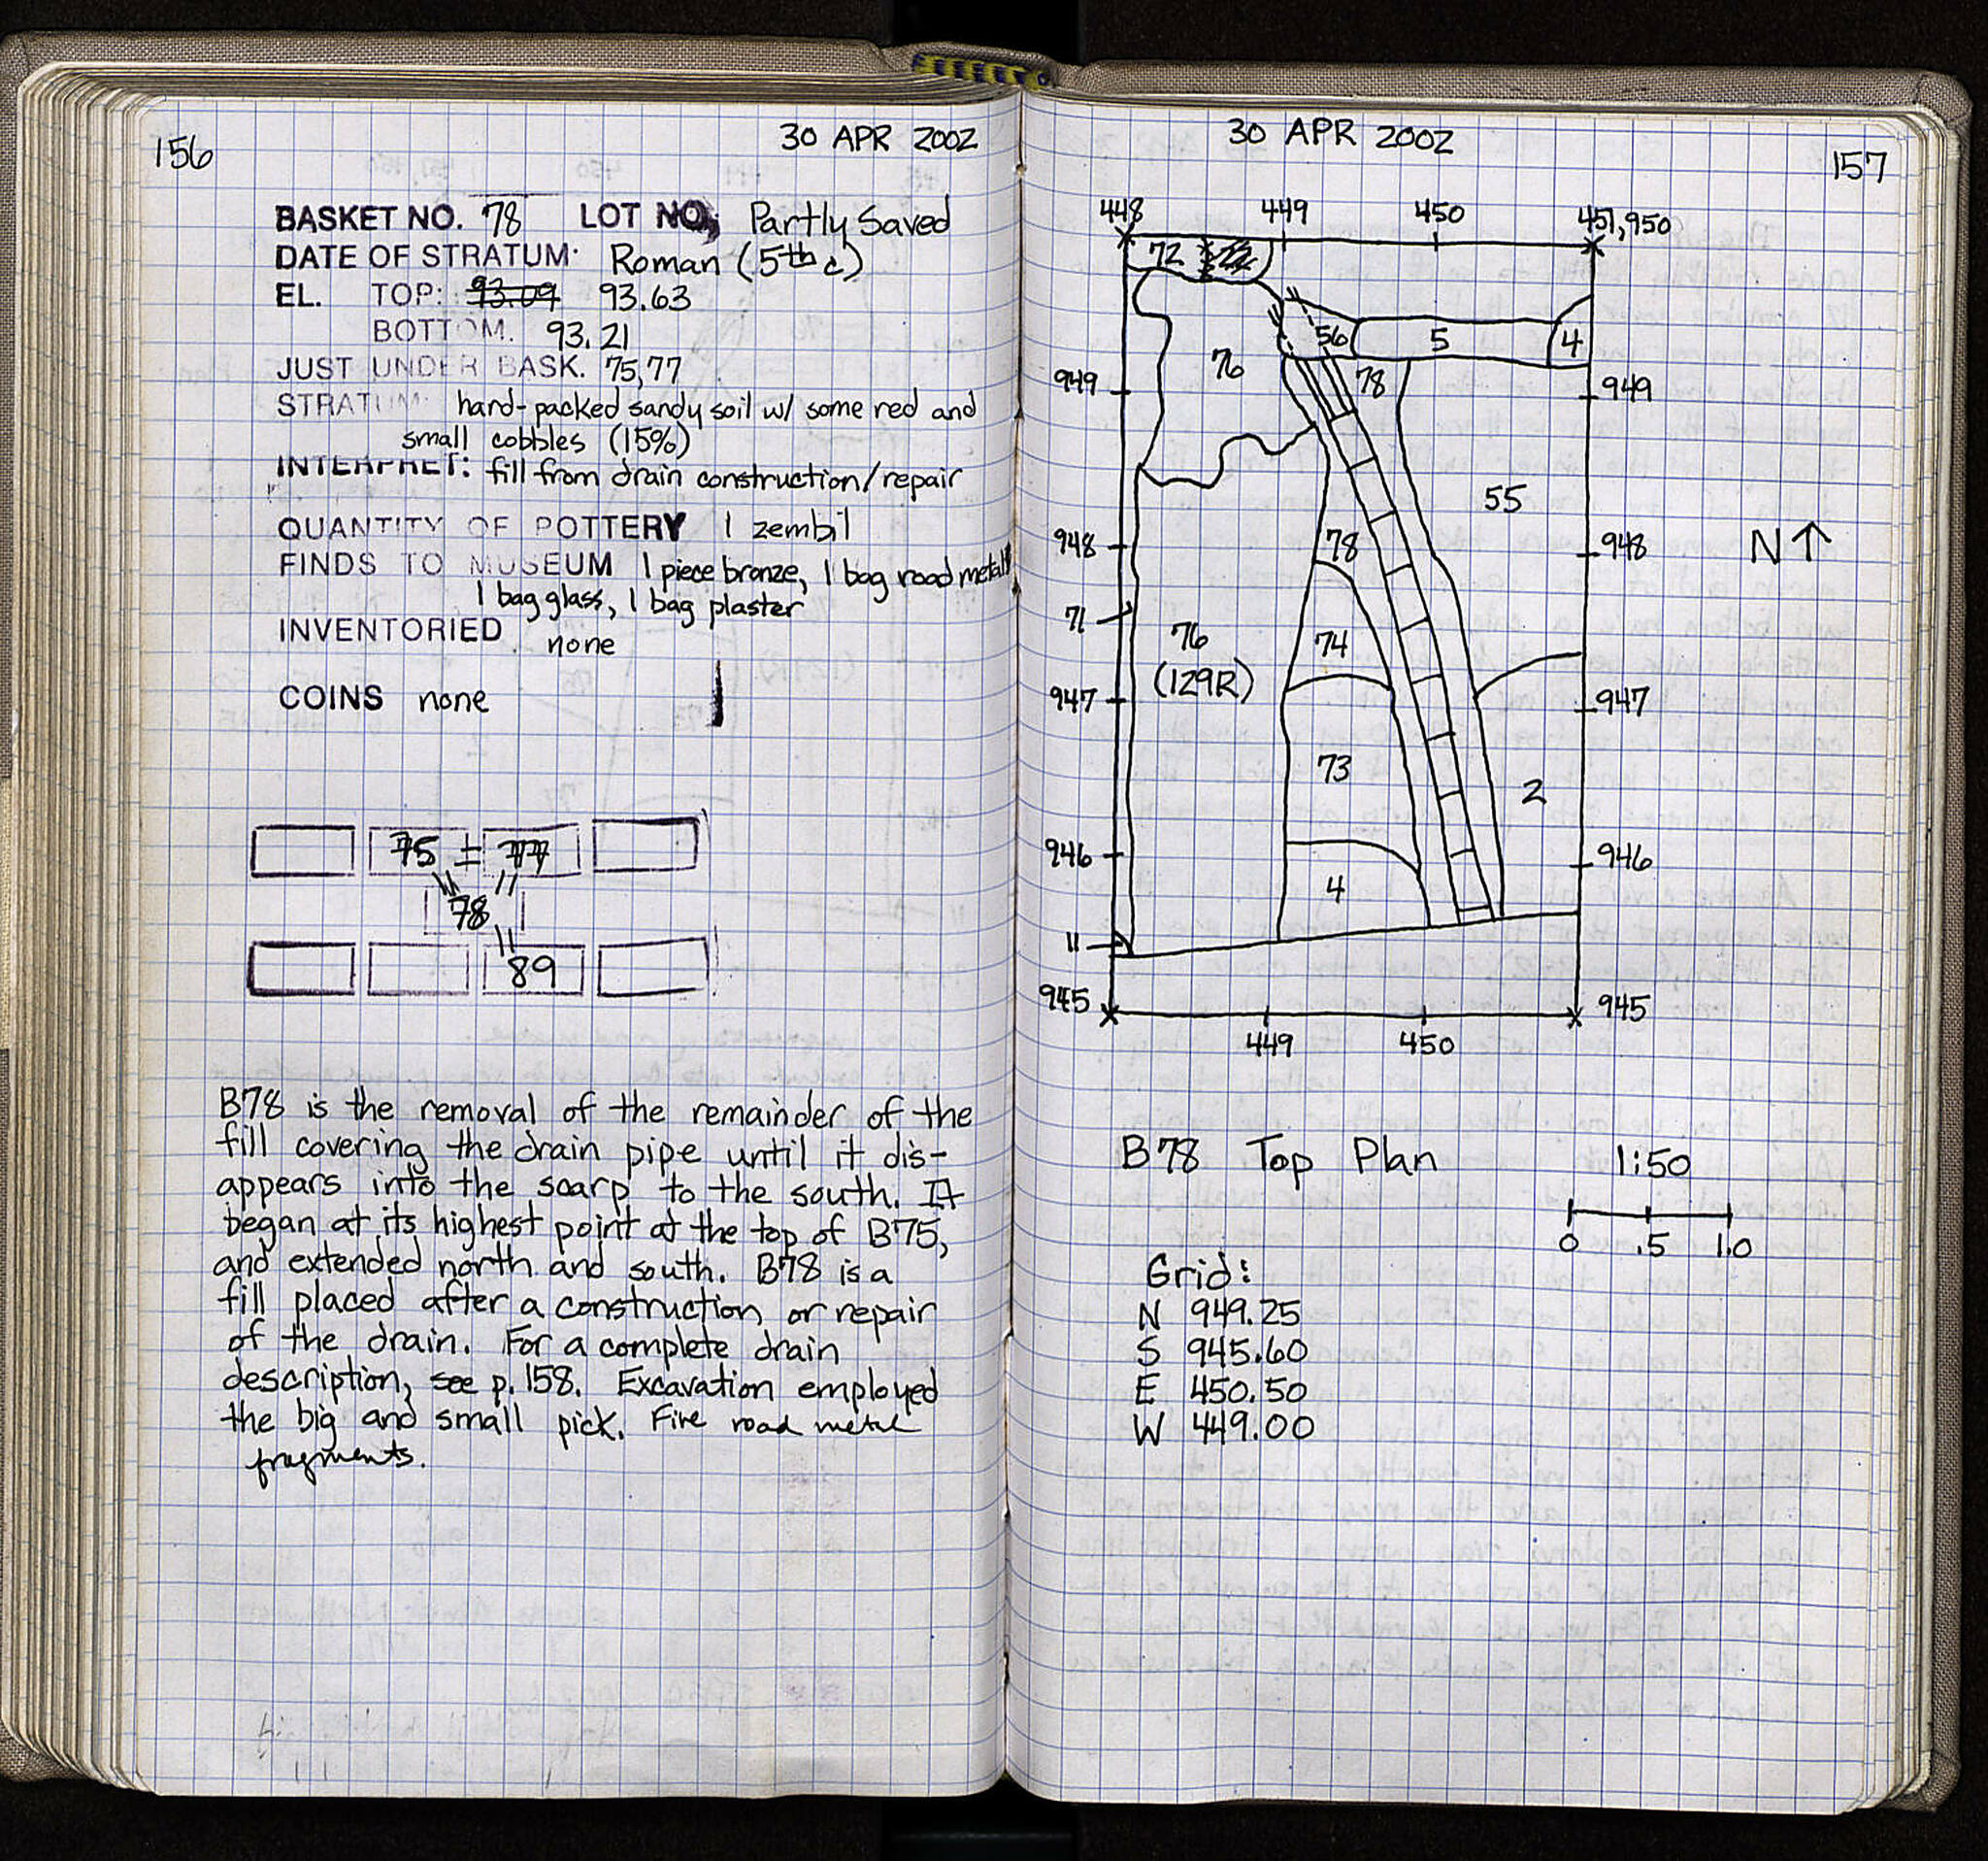 156
30 APR 2002
BASKET NO. 78 LOT NO. Partly Saved
DATE OF STRATUM: Roman (5th c)
EL. TOP: 93.09 93.63
BOTTOM. 93.21
JUST UNDER BASK. 75,77
STRATUM: hard-packed sandy soil w/ some red and
small cobbles (15%)
INTERPRET: fill from drain construction/repair
QUANTITY OF POTTERY 1 zembil
FINDS TO MUSEUM 1 piece bronze, 1 bag road metal
1 bag glass, 1 bag plaster
INVENTORIED none
COINS none
75 = 77
78
89
B78 is the removal of the remainder of the
fill covering the drain pipe until it dis-
appears into the scarp to the south. It
began at its highest point at the top of B75,
and extended north and south. B78 is a
fill placed after a construction, or repair
of the drain. For a complete drain
description, see p. 158. Excavation employed
the big and small pick. Five road metal
fragments.
30 APR 2002
157
448 449 450 451,950
72
56 5 4
76 78
949 949
55
948 78 948
N↑
71
76 74
(129R)
947 947
73
2
946 946
4
11
945 945
449 450
B78 Top Plan 1:50
0 .5 1.0
Grid:
N 949.25
S 945.60
E 450.50
W 449.00